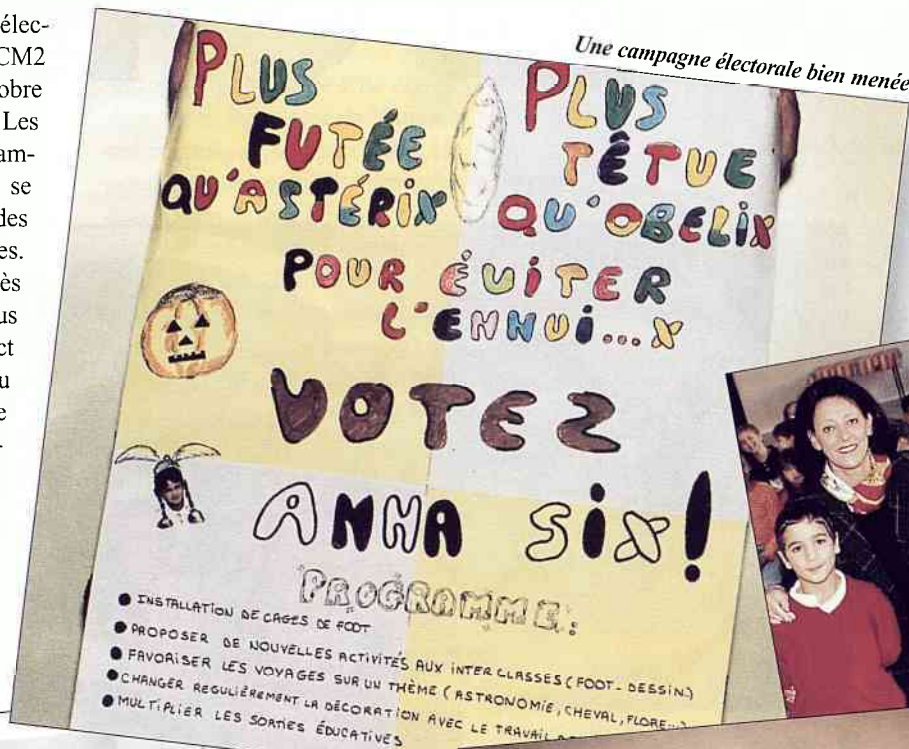 élec-
CM2
obre
Les
am-
se
des
es.
ès
us
ct
u
e
Une campagne électorale bien menée
PLUS
FUTÉE
QU'ASTÉRIX
PLUS
TÊTUE
QU'OBELIX
POUR ÉVITER
L'ENNUI...X
VOTEZ
ANNA SIX!
PROGRAMME:
● INSTALLATION DE CAGES DE FOOT
● PROPOSER DE NOUVELLES ACTIVITÉS AUX INTER CLASSES (FOOT_DESSIN.)
● FAVORISER LES VOYAGES SUR UN THÈME (ASTRONOMIE, CHEVAL, FLORE...)
● CHANGER REGULIÈREMENT LA DÉCORATION AVEC LE TRAVAIL
● MULTIPLIER LES SORTIES ÉDUCATIVES